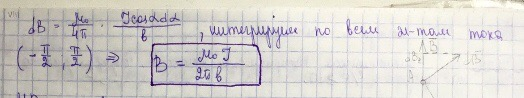 dB = μ₀/4π · Jcosαdα/b , интегрируем по всем эл-там тока
(-π/2, π/2) ⇒ B = μ₀J/2πb